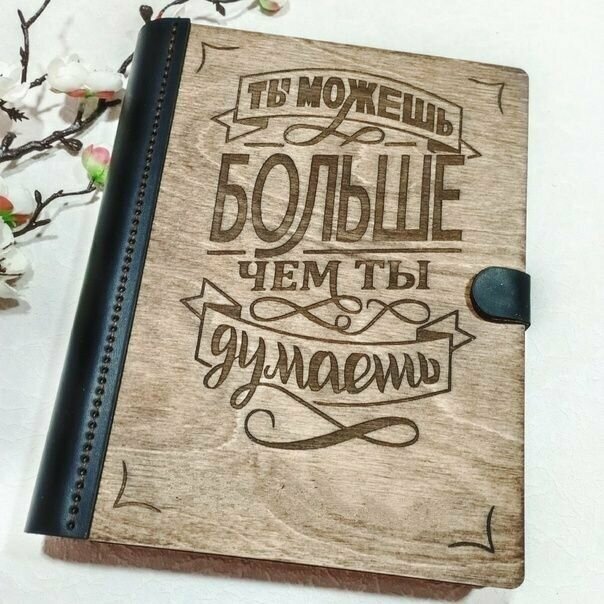 ТЫ МОЖЕШЬ
БОЛЬШЕ
ЧЕМ ТЫ
думаешь